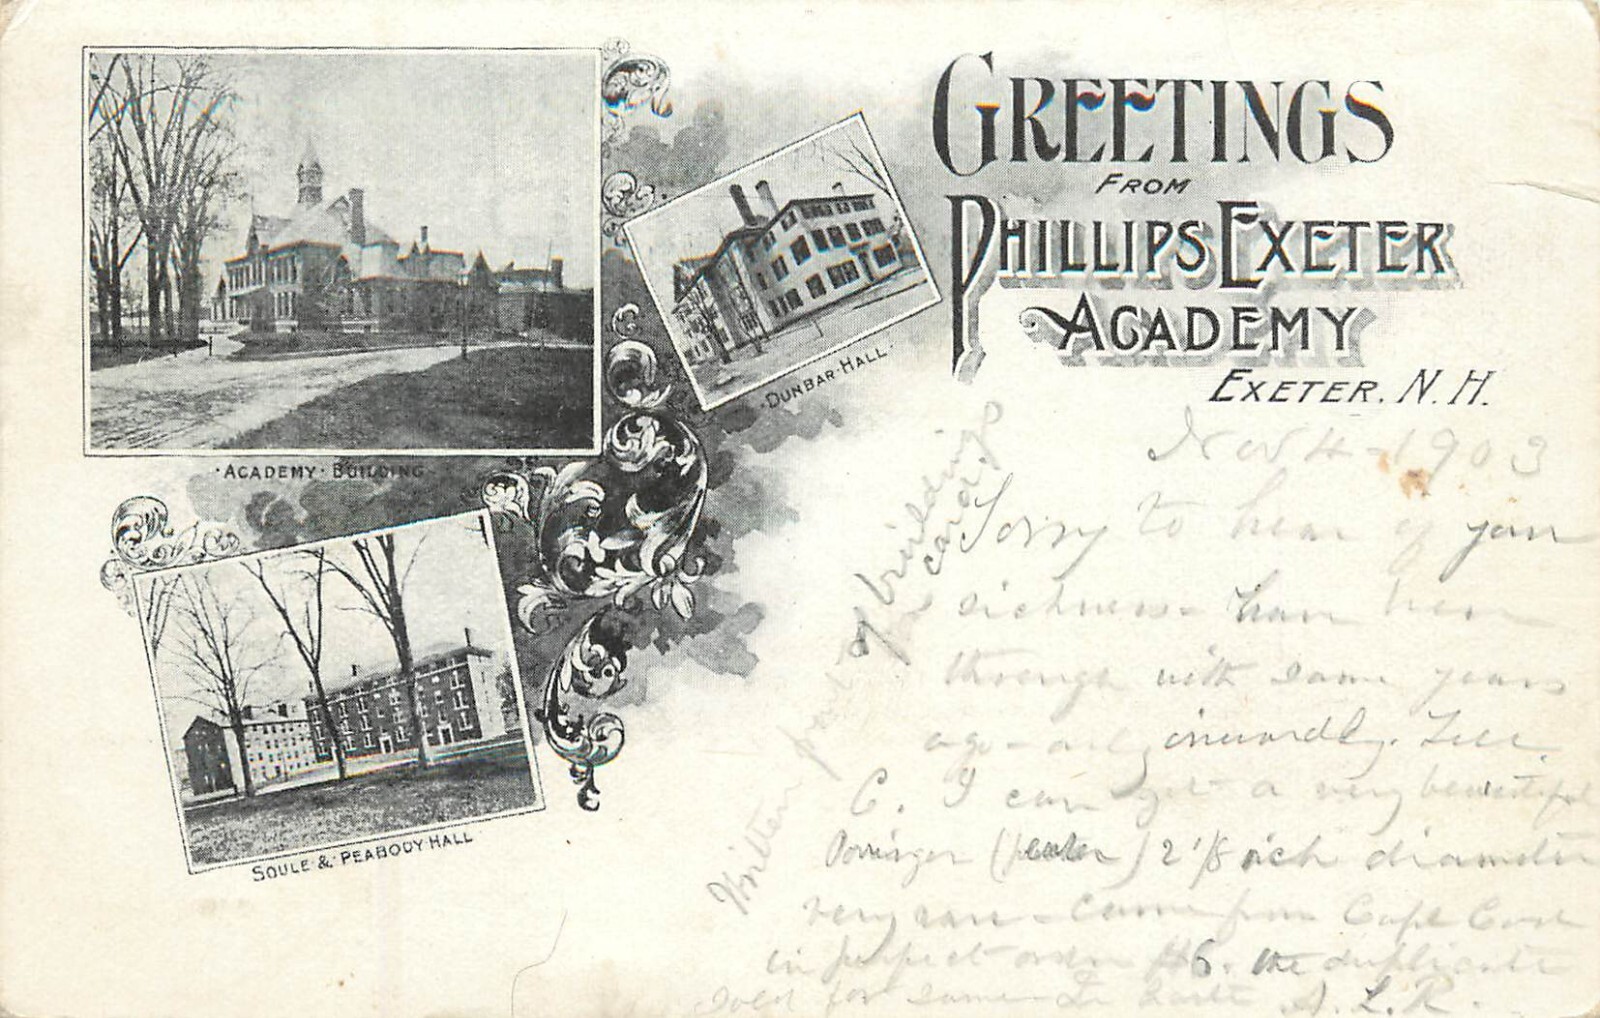 GREETINGS
FROM
PHILLIPS EXETER
ACADEMY
EXETER. N. H.
·ACADEMY·BUILDING·
·DUNBAR·HALL·
SOULE·&·PEABODY·HALL
Nov 4-1903
Sorry to hear of your
sickness-
through with some years
ago - only inwardly.
C. I can get a very beautiful
Porringer (pewter) 2 1/8 inch diameter
very rare - came from Cape Cod
in perfect order the duplicate
sold for same A. L. R.
Written
of buildings
card